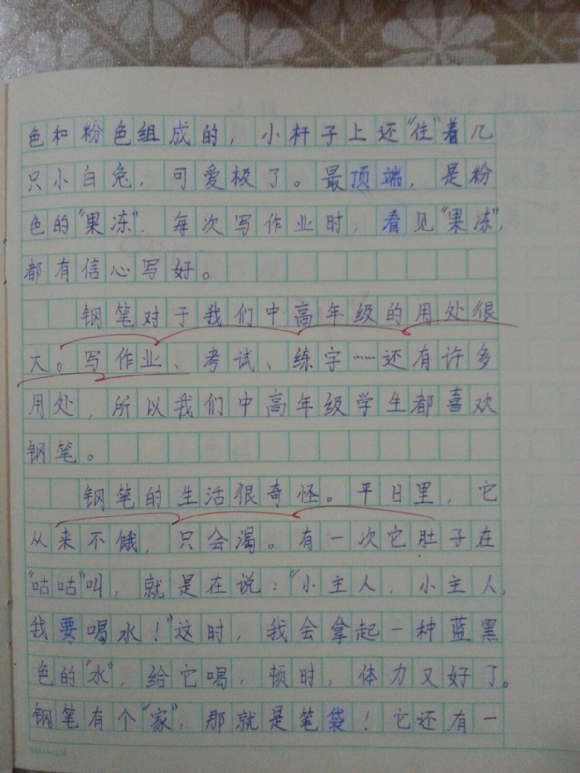 色和粉色组成的，小杆子上还"住"着几
只小白兔，可爱极了。最顶端，是粉
色的"果冻"，每次写作业时，看见"果冻"，
都有信心写好。
钢笔对于我们中高年级的用处很
大。写作业、考试、练字……还有许多
用处，所以我们中高年级学生都喜欢
钢笔。
钢笔的生活很奇怪。平日里，它
从来不饿，只会渴。有一次它肚子在
"咕咕"叫，就是在说："小主人，小主人，
我要喝水！"这时，我会拿起一种蓝黑
色的"水"，给它喝，顿时，体力又好了。
钢笔有个"家"，那就是笔袋！它还有一